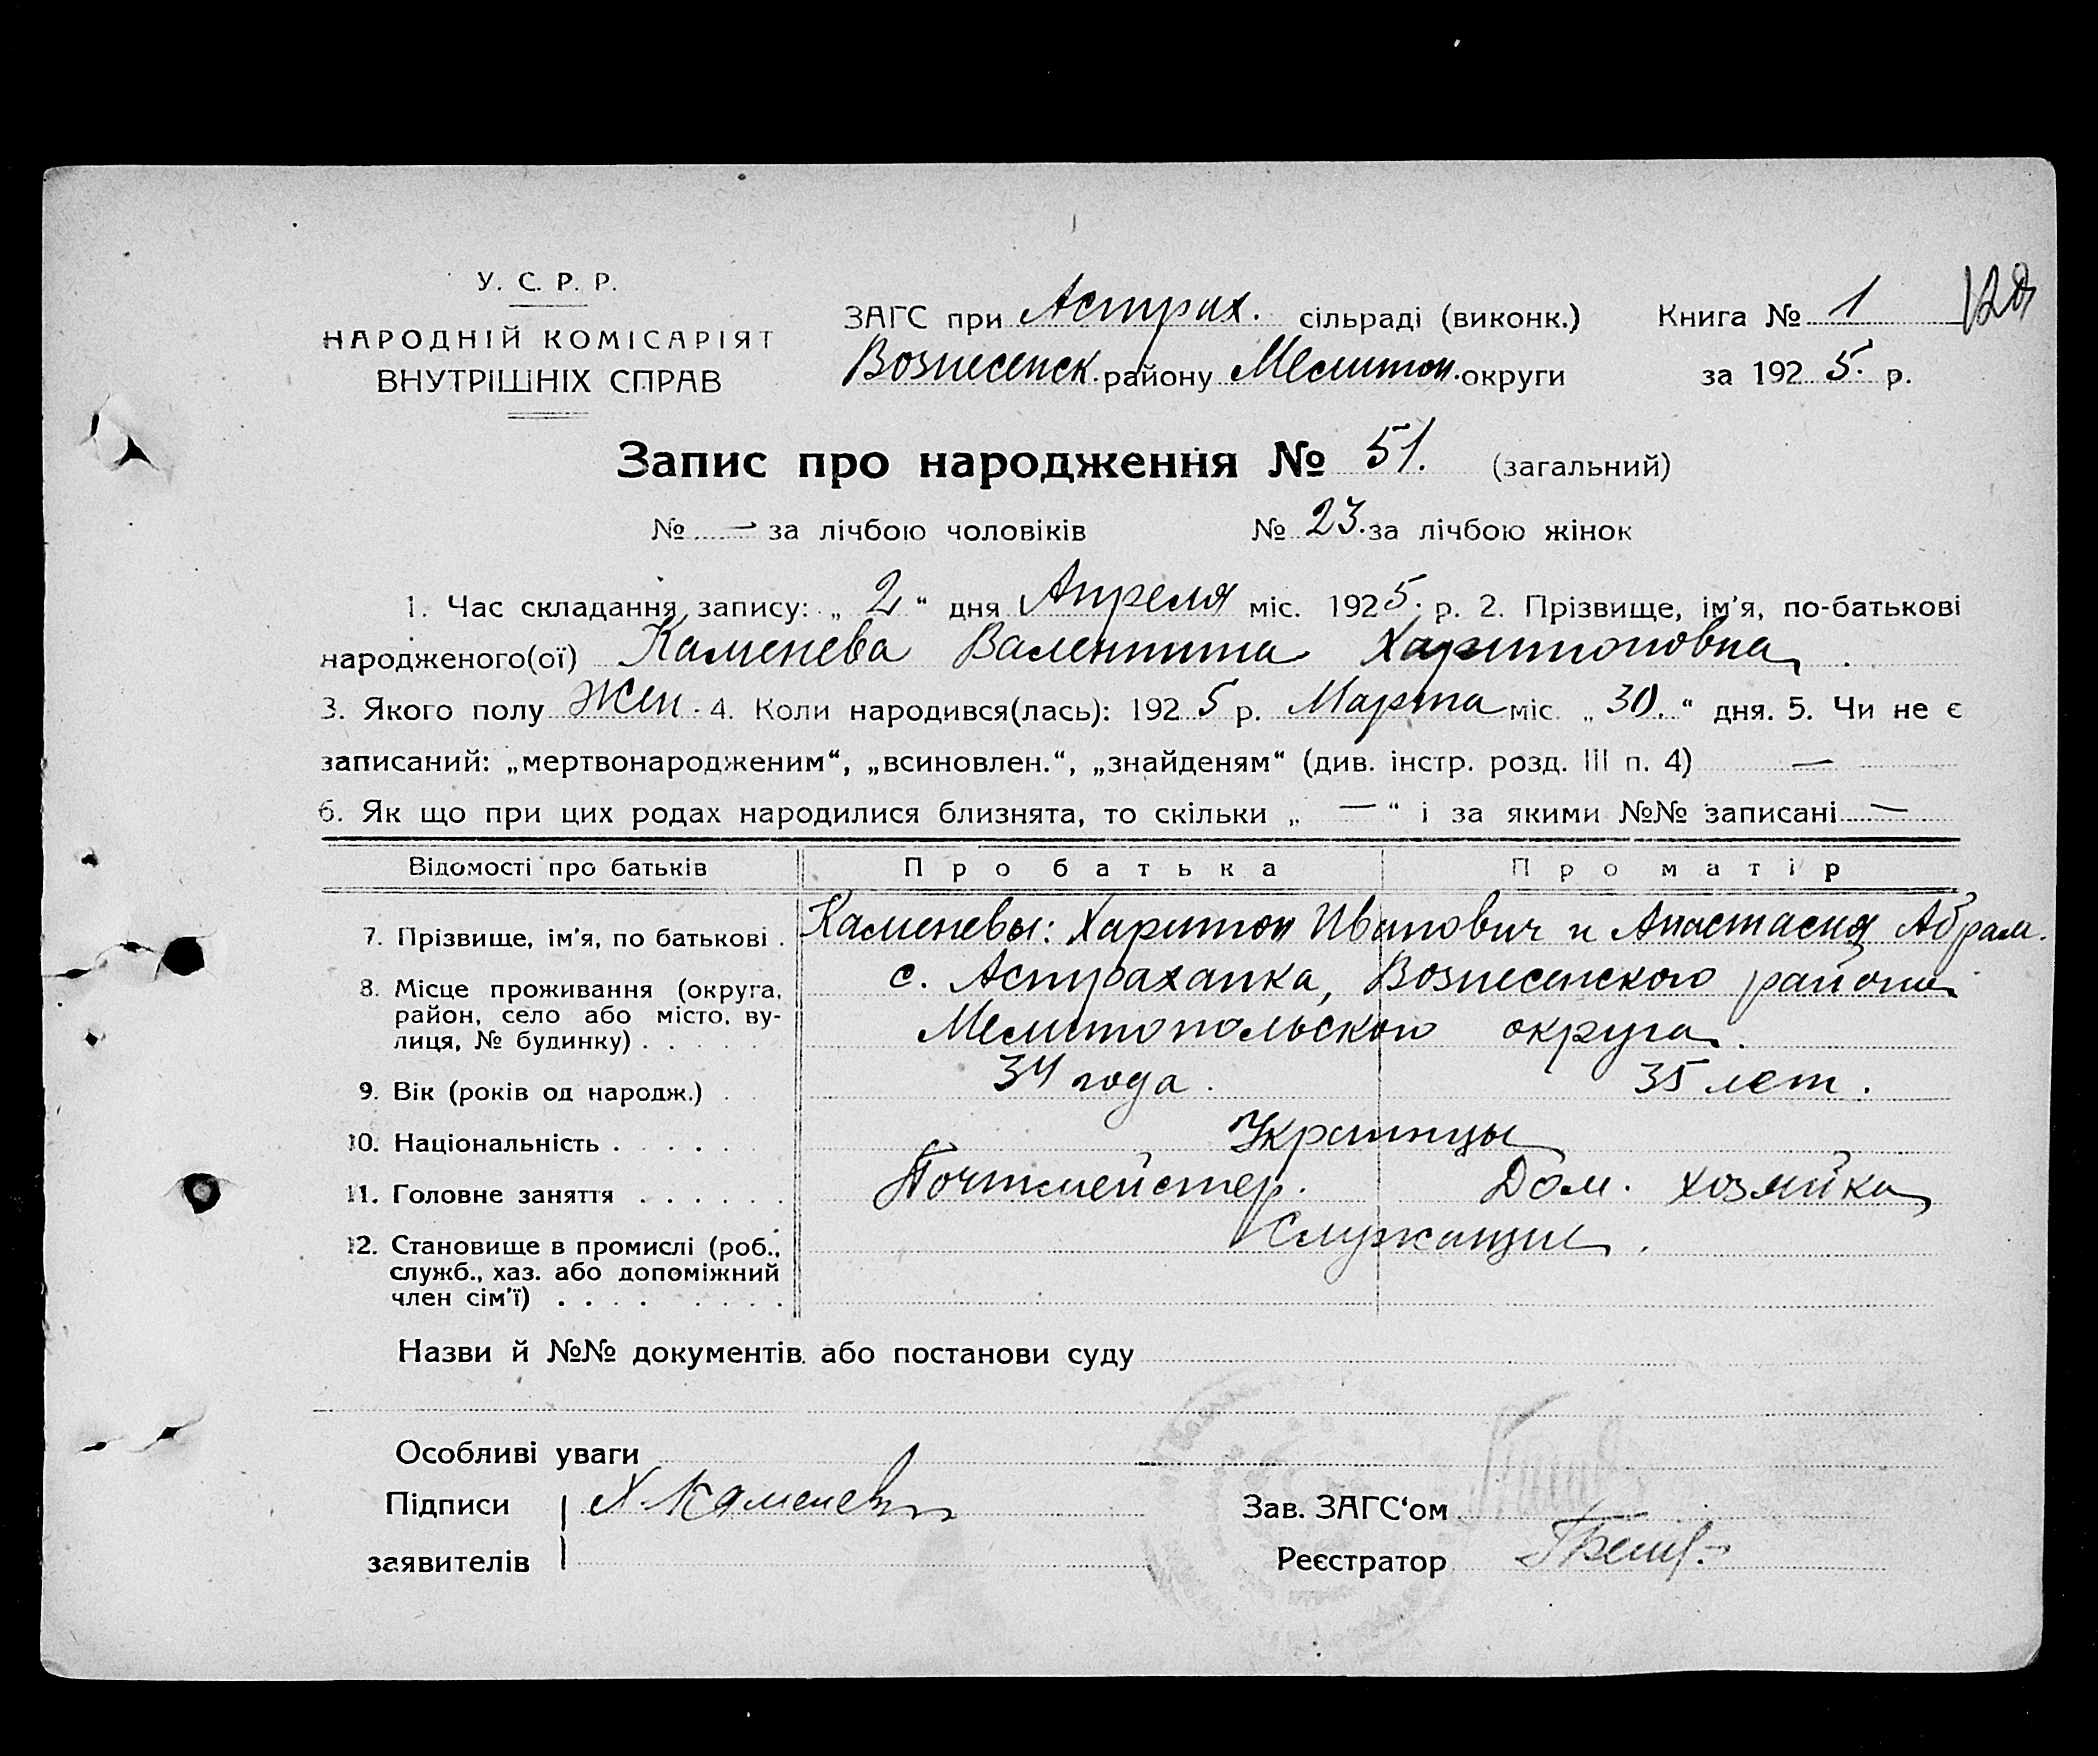 У. С. Р. Р.
НАРОДНІЙ КОМІСАРІЯТ
ВНУТРІШНІХ СПРАВ
ЗАГС при Астрах. сільраді (виконк.)
Вознесенск. району Мелитоп. округи
Книга № 1
за 1925. р.
Запис про народження № 51. (загальний)
№ — за лічбою чоловіків № 23. за лічбою жінок
1. Час складання запису: „ 2 “ дня Апреля міс. 1925. р. 2. Прізвище, ім'я, по-батькові
народженого(ої) Каменева Валентина Харитоновна
3. Якого полу Жен. 4. Коли народився(лась): 1925 р. Марта міс. „ 30. “ дня. 5. Чи не є
записаний: „мертвонародженим“, „всиновлен.“, „знайденям“ (див. інстр. розд. III п. 4) —
6. Як що при цих родах народилися близнята, то скільки „ — “ і за якими №№ записані —
Відомості про батьків Про батька Про матір
7. Прізвище, ім'я, по батькові . Каменевы: Харитон Иванович и Анастасия Абрам.
8. Місце проживання (округа, с. Астраханка, Вознесенского района
район, село або місто, ву-
лиця, № будинку) . . . . . Мелитопольского округа.
9. Вік (років од народж.) . . 34 года. 35 лет.
10. Національність . . . . . Украинцы
11. Головне заняття . . . . . . Почтмейстер. Дом. хозяйка
12. Становище в промислі (роб., Служащие.
служб., хаз. або допоміжний
член сім'ї) . . . . . . . .
Назви й №№ документів або постанови суду
Особливі уваги
Підписи Х. Каменев
заявителів
Зав. ЗАГС‘ом
Реєстратор